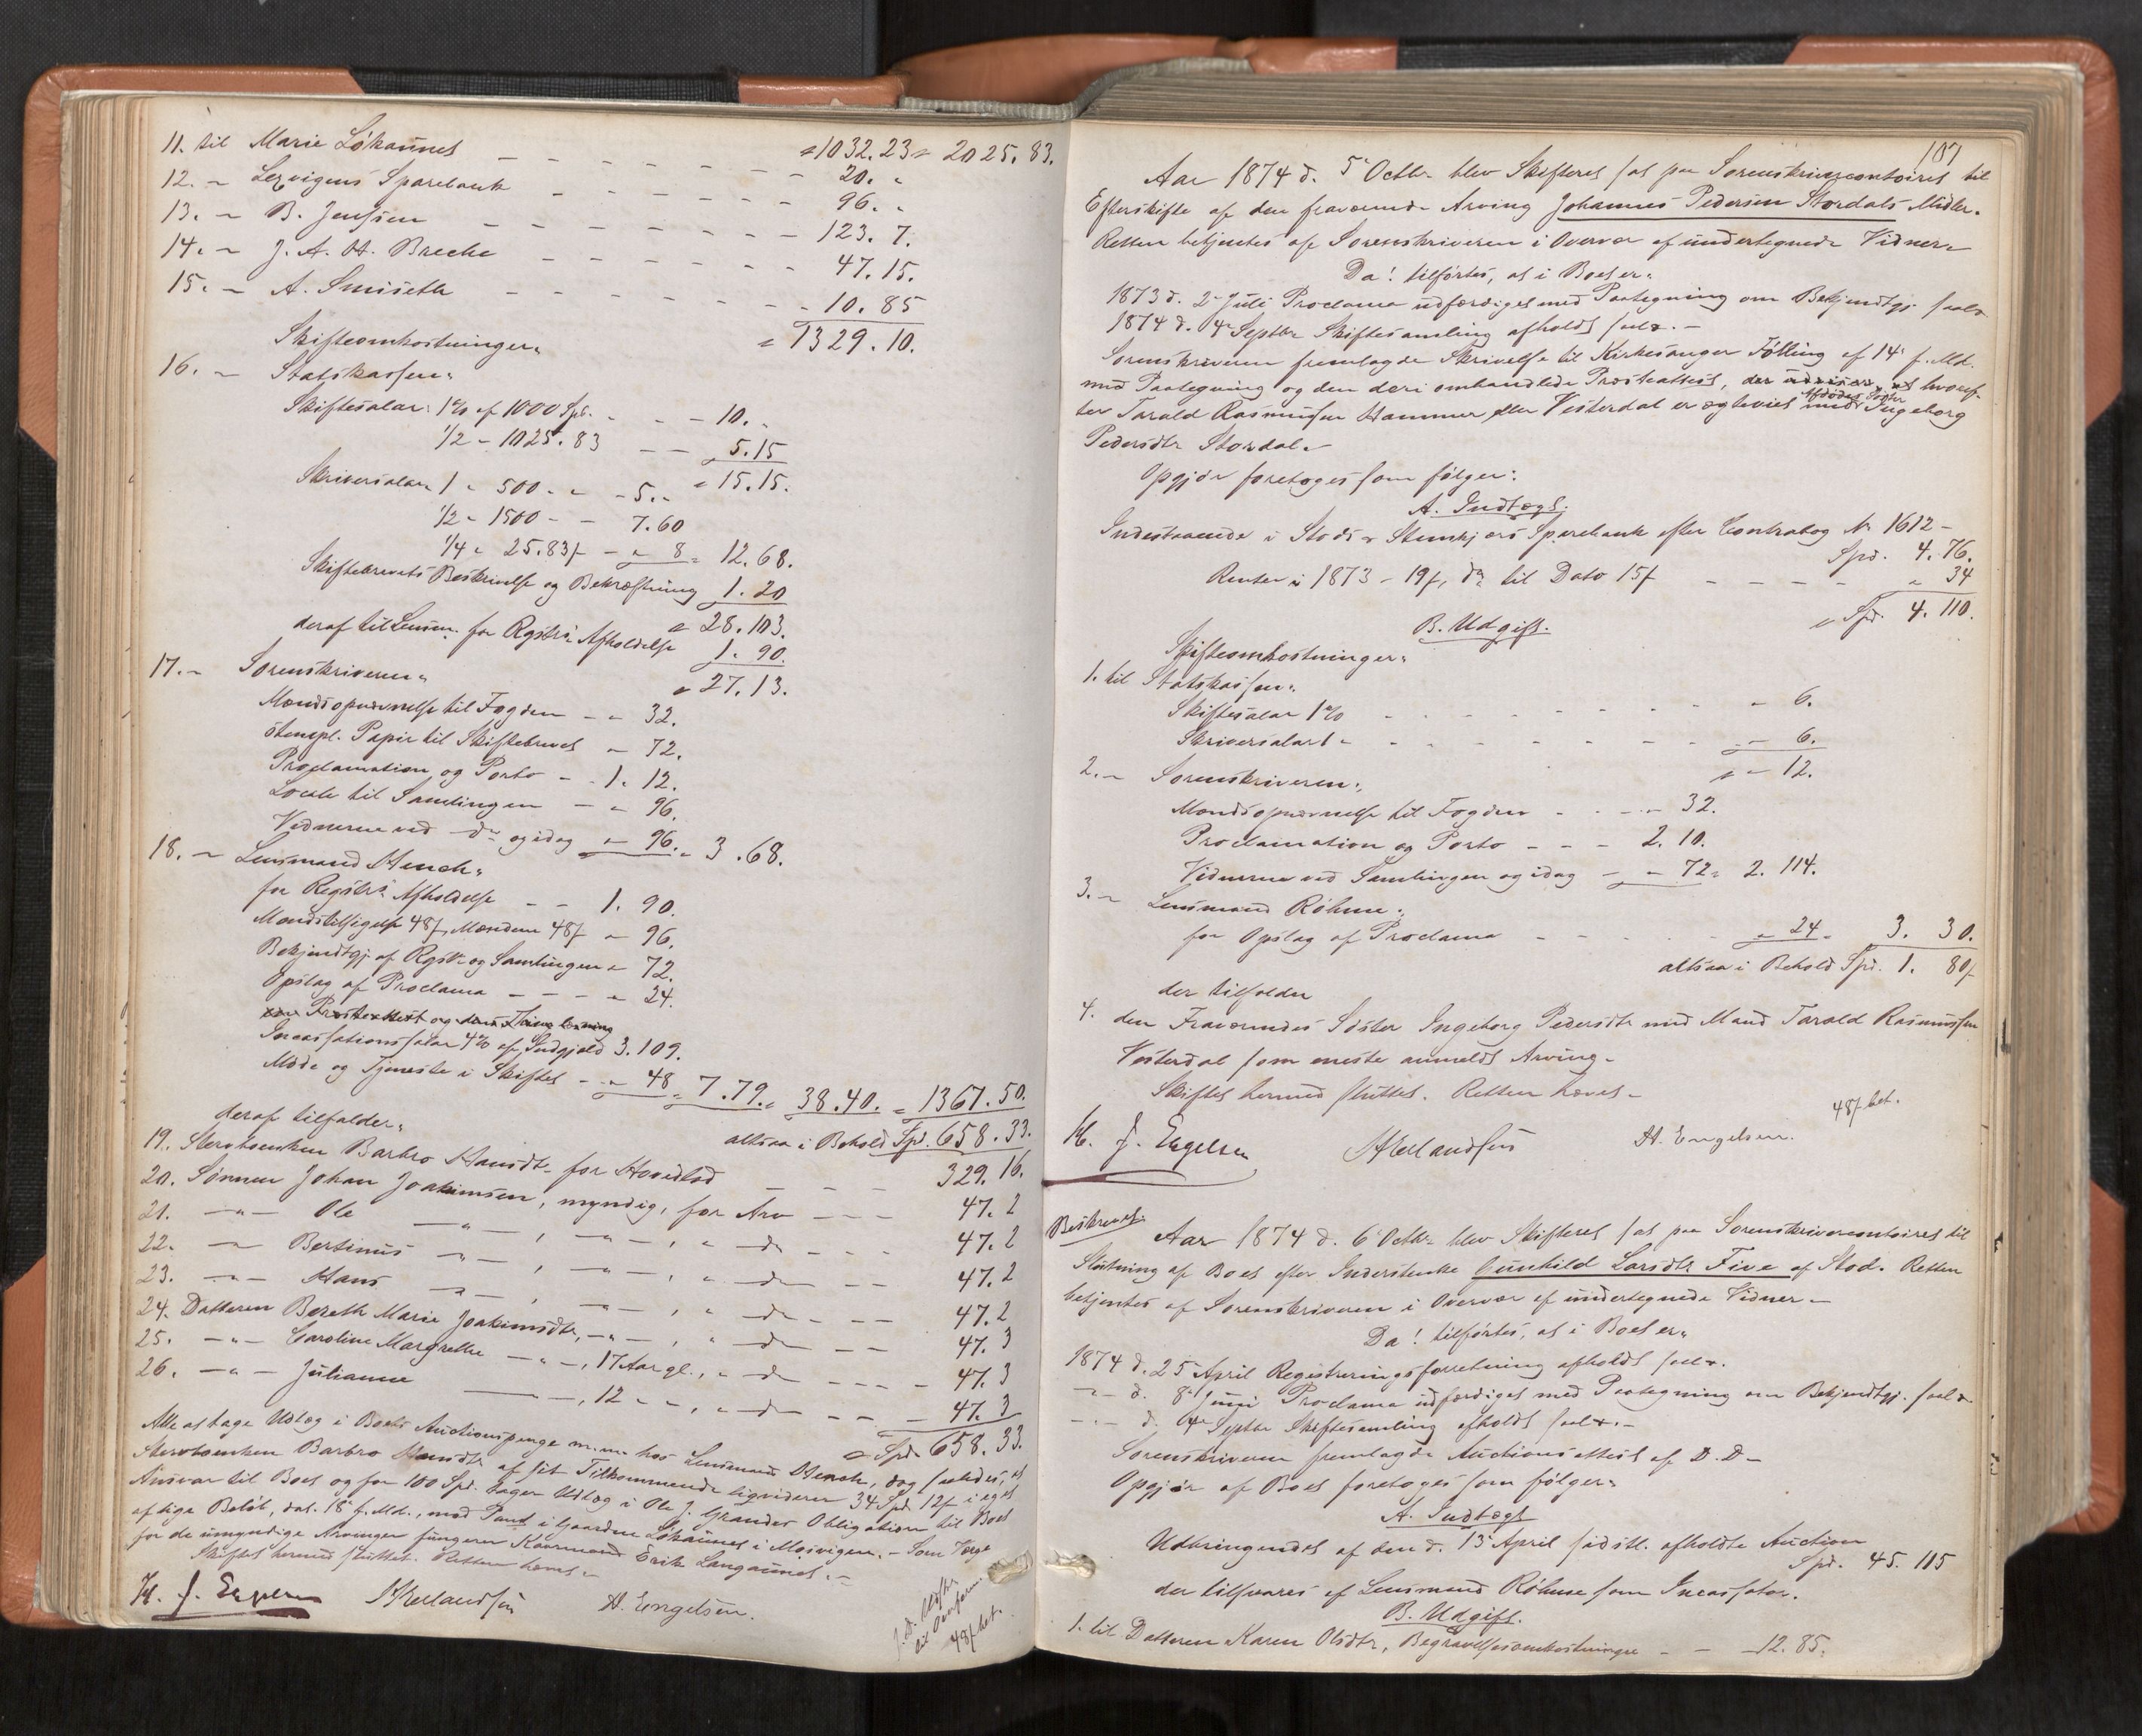 11. til Marie Løkaunet - - - - - - 1032.23 = 2025.83.
12. " Lexvigens Sparebank - - - - - 20. "
13. " B. Jenssen - - - - - - 96. "
14. " J. A. H. Brecke - - - - - - 123. 7.
15. " A. Smiseth - - - - - - 47. 15.
- 10. 85
Skifteomkostninger: " 1329. 10.
16. " Statskassen:
Skiftesalar: 1% af 1000 Spd. - - - 10. "
1/2 " 1025. 83 - - " 5.15
Skriversalar 1 " 500. " - 5. " " 15.15.
1/2 " 1500 - - 7.60
1/4 " 25.83 f - " 8 = 12.68.
Skiftebrevets Beskrivelse og Bekræftning 1. 20
" 28. 103.
deraf til Lensm. for Rgstrs Afholdelse 1. 90.
" 27. 13.
17. " Sorenskriveren:
Mændsopnævnelse til Fogden - " 32.
stempl. Papir til Skiftebrevet " 72.
Proclamation og Porto - - 1. 12.
Locale til Samlingen - " 96.
Vidnerne ved do og idag " 96. = 3. 68.
18. " Lensmand Hench:
for Regstrs Afholdelse - - 1. 90.
Mændstilsigelse 48 f, Mændene 48 f " 96.
Bekjendtgj. af Rgst. og Samlingen " 72.
Opslag af Proclama - - - " 24.
Præsteattest og dens
Incassationssalar 4% af Indgjæld 3. 109.
Møde og Tjeneste i Skiftet - " 48 = 7. 79. = 38. 40. = 1367. 50.
altsaa i Behold Spd. 658. 33.
deraf tilfalder:
19. Stervboenken Barbro Hansdtr for Hovedlod - - - 329. 16.
20. Sønnen Johan Joakimsen, myndig, for Arv - - - 47. 2
21. -"- Ole -"-, -"-, " do - - - 47. 2
22. -"- Bertinus -"-, -"-, " do - - 47. 2
23. -"- Hans -"-, -"-, " do - - - 47. 2
24. Datteren Bereth Marie Joakimsdtr, -"-, " do - - 47. 3
25. -"- Caroline Margrethe -"-, 17 Aar gl., " do - - - 47. 3
26. -"- Julianne ——, 12 " ", " do - - - 47. 3
" Spd. 658. 33.
Alle at tage Udlæg i Boets Auctionspenge m.m. hos Lensmand Hench, dog saaledes, at
Stervboenken Barbro Hansdtr af sit Tilkommende liqviderer 34 Spd. 12 f i eget
Ansvar til Boet og for 100 Spd. tager Udlæg i Ole J. Grandes Obligation til Boet
af lige Beløb, dat. 18 f. Md., med Pant i Gaarden Løkaunet i Mosvigen. - Som Værge
for de umyndige Arvinger fungerer Kaarmand Erik Langaunet. -
Skiftet hermed sluttet. Retten hævet. -
H. J. Engelsen A. Engelsen.
48 f bet.
107
Aar 1874 d. 5 Octbr blev Skifteret sat paa Sorenskrivercontoiret til
Efterskifte af den fraværende Arving Johannes Pedersen Stordals Midler.
Retten betjentes af Sorenskriveren i Overvær af undertegnede Vidner.
Da! tilførtes, at i Boet er:
1873 d. 2 Juli Proclama udfærdiget med Paategning om Bekjendtgj. saal.
1874 d. 4 Septbr Skiftesamling afholdt saal. -
Sorenskriveren fremlagde Skrivelse til Kirkesanger Følling af 14 f. Md.
med Paategning og den deri omhandlede Præsteattest, der udviser, at hvoref-
Afdødes Søster
ter Tarald Rasmussen Hammer eller Vesterdal er ægteviet med Ingeborg
Pedersdtr Stordal. -
Opgjør foretoges som følger:
A. Indtægt.
Indestaaende i Stods & Stenkjærs Sparebank efter Contrabog No 1612 -
Spd. 4. 76.
Renter i 1873 - 19 f, do til Dato 15 f - - - - " 34
" Spd. 4. 110.
B. Udgift.
Skifteomkostninger:
1. til Statskassen:
Skiftesalar 1% - - - - - - - " 6.
Skriversalar 1 " - - - - - - - " 6.
" " 12.
2. " Sorenskriveren:
Mændsopnævnelse til Fogden - - - " 32.
Proclamation og Porto - - - 2. 10.
Vidnerne ved Samlingen og idag - " 72 = 2. 114.
3. " Lensmand Røhme:
for Opslag af Proclama - - - - " 24 = 3. 30.
altsaa i Behold Spd. 1. 80 f
der tilfalder
4. den Fraværendes Søster Ingeborg Pedersdtr med Mand Tarald Rasmussen
Vesterdal som eneste anmeldt Arving.
Skiftet hermed sluttet. Retten hævet. -
48 f bet.
H. J. Engelsen A. Engelsen.
Beskrevet.
Aar 1874 d. 6 Octbr blev Skifteret sat paa Sorenskrivercontoiret til
Slutning af Boet efter Inderstenke Gunhild Larsdtr Five af Stod. Retten
betjentes af Sorenskriveren i Overvær af undertegnede Vidner. -
Da! tilførtes, at i Boet er:
1874 d. 25 April Registreringsforretning afholdt saal.
-"- d. 8 Juni Proclama udfærdiget med Paategning om Bekjendtgj. saal.
-"- d. 4 Septbr Skiftesamling afholdt saal. -
Sorenskriveren fremlagde Auctionsattest af D. D. -
Opgjør af Boet foretoges som følger:
A. Indtægt
Udbringendet af den d. 13 April sidstl. afholdte Auction
Spd. 45. 115
der tilsvares af Lensmand Røhme som Incassator.
B. Udgift.
1. til Datteren Karen Olsdtr, Begravelsesomkostninger - - 12. 85.